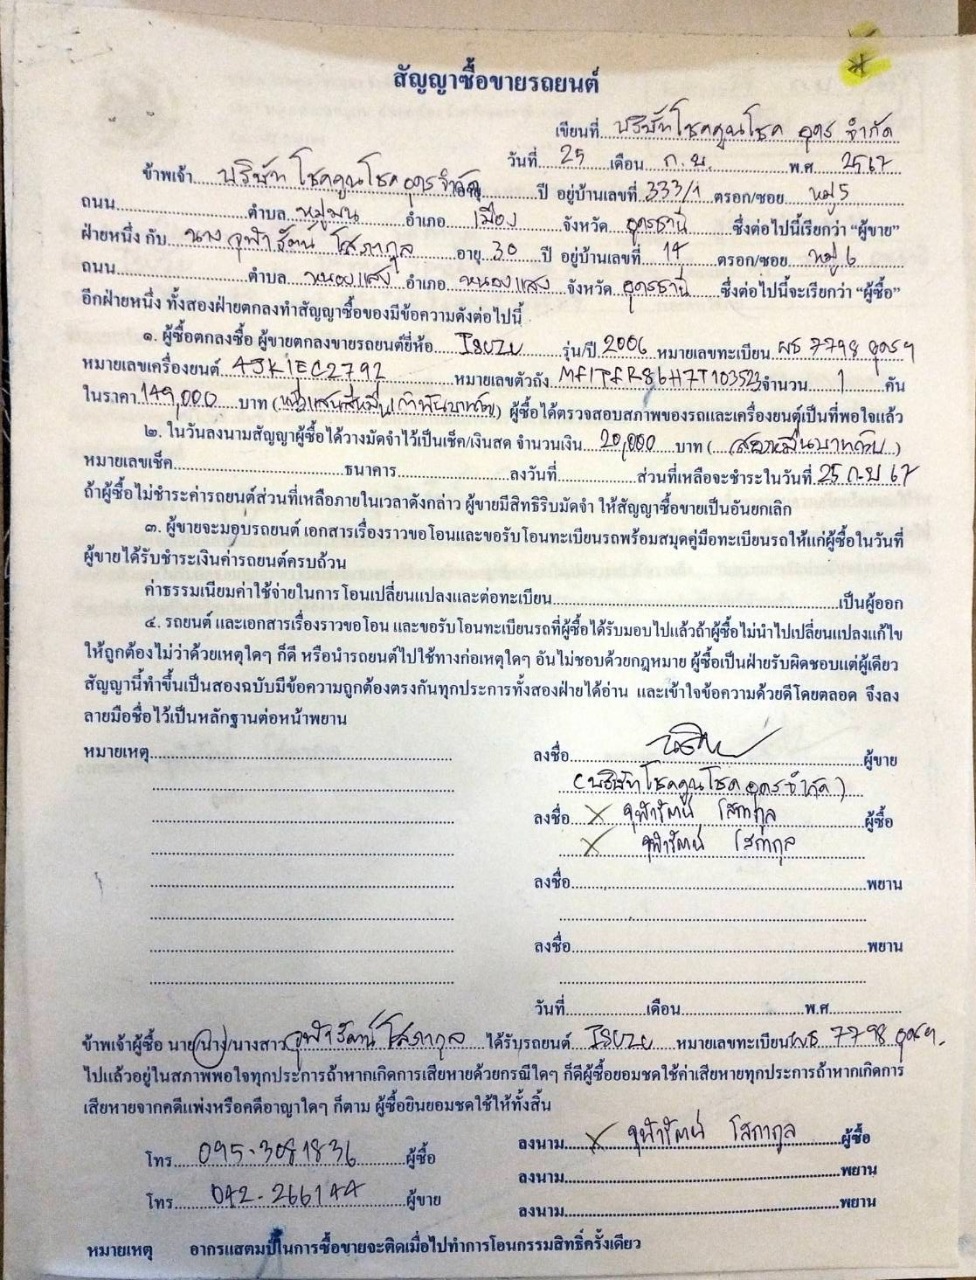 สัญญาซื้อขายรถยนต์
เขียนที่ บริษัท โชคคูนโชค อุดร จำกัด
วันที่ 25 เดือน ก.ย. พ.ศ 2567
ข้าพเจ้า บริษัท โชคคูนโชค อุดร จำกัด อายุ ปี อยู่บ้านเลขที่ 333/1 ตรอก/ซอย หมู่ 5
ถนน ตำบล หมูม่น อำเภอ เมือง จังหวัด อุดรธานี ซึ่งต่อไปนี้เรียกว่า “ผู้ขาย”
ฝ่ายหนึ่ง กับ นาง จุฬารัตน์ โสภากุล อายุ 30 ปี อยู่บ้านเลขที่ 14 ตรอก/ซอย หมู่ 6
ถนน ตำบล หนองแสง อำเภอ หนองแสง จังหวัด อุดรธานี ซึ่งต่อไปนี้จะเรียกว่า “ผู้ซื้อ”
อีกฝ่ายหนึ่ง ทั้งสองฝ่ายตกลงทำสัญญาซื้อของมีข้อความดังต่อไปนี้
๑. ผู้ซื้อตกลงซื้อ ผู้ขายตกลงขายรถยนต์ยี่ห้อ ISUZU รุ่น/ปี 2006 หมายเลขทะเบียน ผธ 7798 อุดรฯ
หมายเลขเครื่องยนต์ 4JK1EC2792 หมายเลขตัวถัง MP1TFR86H7T103523 จำนวน 1 คัน
ในราคา 149,000 บาท (หนึ่งแสนสี่หมื่นเก้าพันบาทถ้วน) ผู้ซื้อได้ตรวจสอบสภาพของรถและเครื่องยนต์เป็นที่พอใจแล้ว
๒. ในวันลงนามสัญญาผู้ซื้อได้วางมัดจำไว้เป็นเช็ค/เงินสด จำนวนเงิน 20,000 บาท (สองหมื่นบาทถ้วน)
หมายเลขเช็ค ธนาคาร ลงวันที่ ส่วนที่เหลือจะชำระในวันที่ 25 ก.ย 67
ถ้าผู้ซื้อไม่ชำระค่ารถยนต์ส่วนที่เหลือภายในเวลาดังกล่าว ผู้ขายมีสิทธิริบมัดจำ ให้สัญญาซื้อขายเป็นอันยกเลิก
๓. ผู้ขายจะมอบรถยนต์ เอกสารเรื่องราวขอโอนและขอรับโอนทะเบียนรถพร้อมสมุดคู่มือทะเบียนรถให้แก่ผู้ซื้อในวันที่
ผู้ขายได้รับชำระเงินค่ารถยนต์ครบถ้วน
ค่าธรรมเนียมค่าใช้จ่ายในการโอนเปลี่ยนแปลงและต่อทะเบียน เป็นผู้ออก
๔. รถยนต์ และเอกสารเรื่องราวขอโอน และขอรับโอนทะเบียนรถที่ผู้ซื้อได้รับมอบไปแล้วถ้าผู้ซื้อไม่นำไปเปลี่ยนแปลงแก้ไข
ให้ถูกต้องไม่ว่าด้วยเหตุใดๆ ก็ดี หรือนำรถยนต์ไปใช้ทางก่อเหตุใดๆ อันไม่ชอบด้วยกฎหมาย ผู้ซื้อเป็นฝ่ายรับผิดชอบแต่ผู้เดียว
สัญญานี้ทำขึ้นเป็นสองฉบับมีข้อความถูกต้องตรงกันทุกประการทั้งสองฝ่ายได้อ่าน และเข้าใจข้อความด้วยดีโดยตลอด จึงลง
ลายมือชื่อไว้เป็นหลักฐานต่อหน้าพยาน
หมายเหตุ ลงชื่อ ผู้ขาย
(บริษัท โชคคูนโชค อุดร จำกัด)
ลงชื่อ X จุฬารัตน์ โสภากุล ผู้ซื้อ
X จุฬารัตน์ โสภากุล
ลงชื่อ พยาน
ลงชื่อ พยาน
วันที่ เดือน พ.ศ
ข้าพเจ้าผู้ซื้อ นาย/นาง/นางสาว จุฬารัตน์ โสภากุล ได้รับรถยนต์ ISUZU หมายเลขทะเบียน ผธ 7798 อุดรฯ
ไปแล้วอยู่ในสภาพพอใจทุกประการถ้าหากเกิดการเสียหายด้วยกรณีใดๆ ก็ดีผู้ซื้อยอมชดใช้ค่าเสียหายทุกประการถ้าหากเกิดการ
เสียหายจากคดีแพ่งหรือคดีอาญาใดๆ ก็ตาม ผู้ซื้อยินยอมชดใช้ให้ทั้งสิ้น
ลงนาม X จุฬารัตน์ โสภากุล ผู้ซื้อ
โทร 095-3081836 ผู้ซื้อ
ลงนาม พยาน
โทร 042-266144 ผู้ขาย
ลงนาม พยาน
หมายเหตุ อากรแสตมป์ในการซื้อขายจะติดเมื่อไปทำการโอนกรรมสิทธิ์ครั้งเดียว